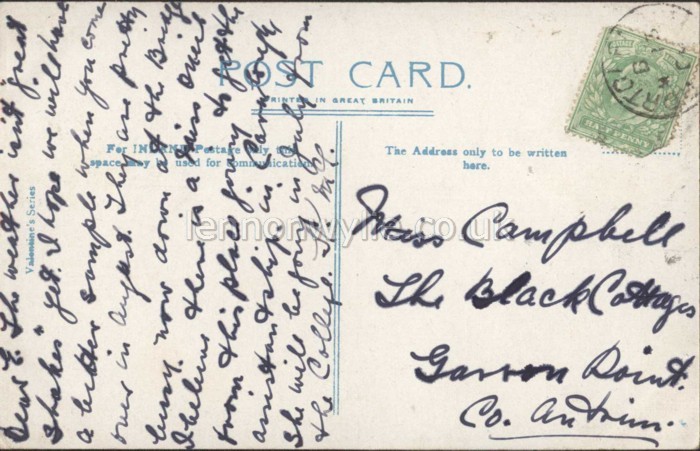 POST CARD.
PRINTED IN GREAT BRITAIN
For INLAND Postage only this
space may be used for communication.
The Address only to be written
here.
Valentine's Series
HALF PENNY
lennonwylie.co.uk
Dear E. The weather isn't great
Shakes" yet. I hope we will have
a better sample when you come
over in August. They are pretty
busy now down at the Bridge
I believe there is a Miss
from this place going to get the
assistantship in Carnlough,
She will be for in July from
the College.
Miss Campbell
The Black Cottages
Garron Point.
Co. Antrim.